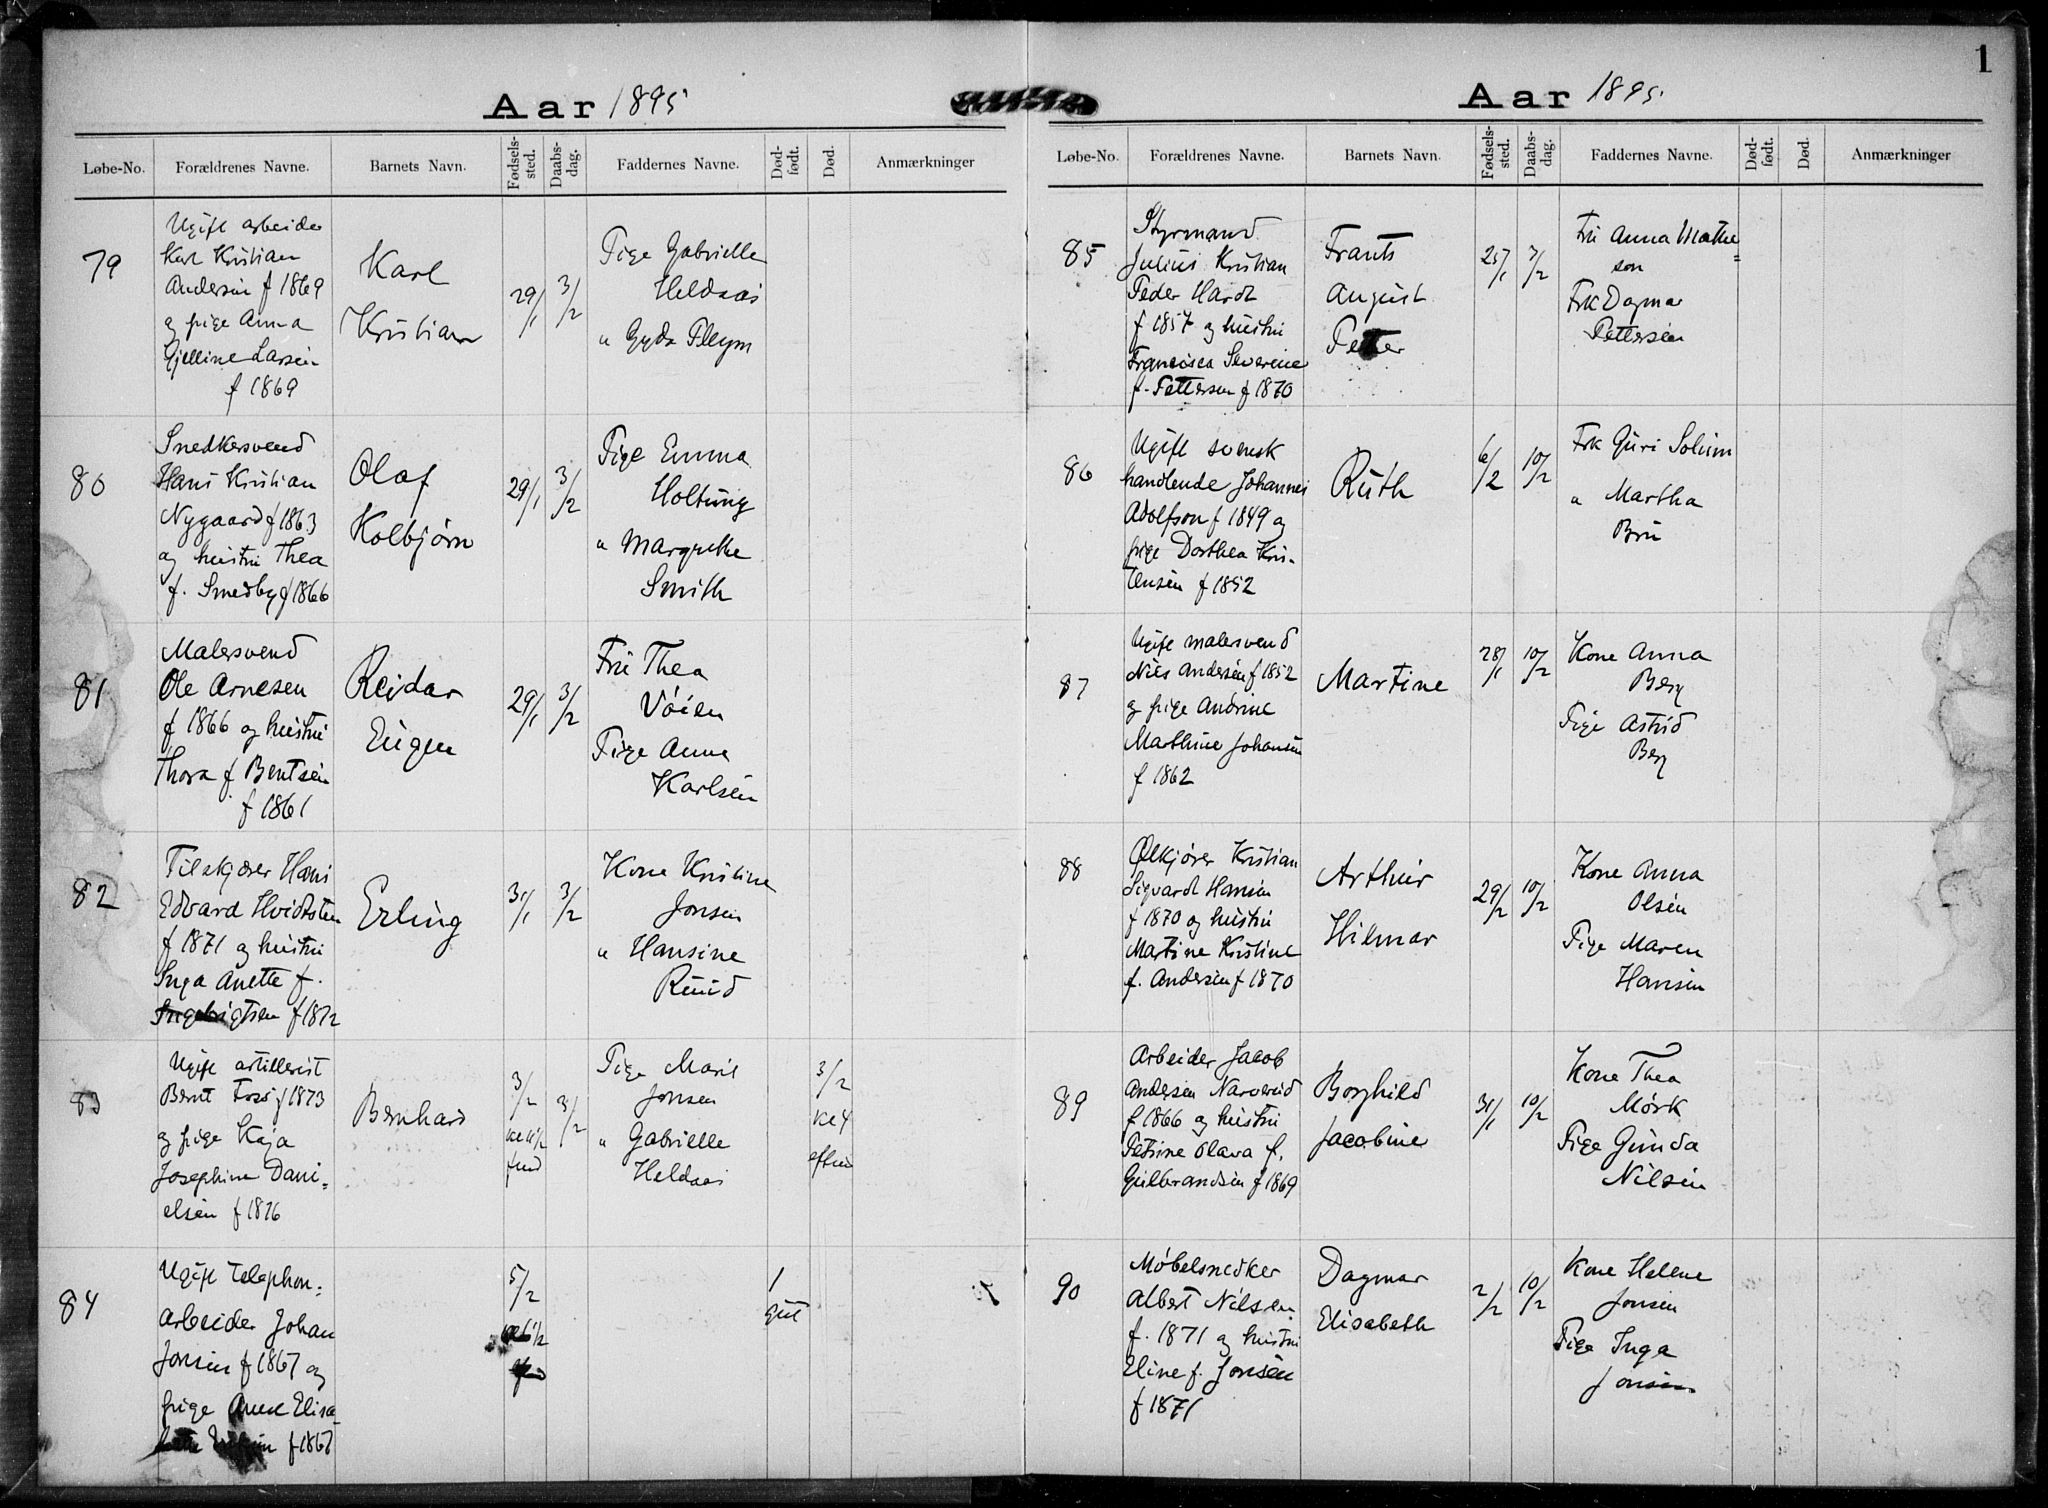 1
Aar 1895
Løbe-No. Forældrenes Navne. Barnets Navn. Fødsels-sted. Daabs-dag. Faddernes Navne. Død-født. Død. Anmærkninger
79
Ugift arbeider
Karl Kristian
Andersen f 1869
og pige Anna
Gjelline Larsen
f 1869
Karl
Kristian
29/1
3/2
Pige Gabrielle
Heldaas
" Gyda Fleym
80
Snedkersvend
Hans Kristian
Nygaard f 1863
og hustru Thea
f. Smedby f 1866
Olaf
Kolbjørn
29/1
3/2
Pige Emma
Holtung
" Margrethe
Smith
81
Malersvend
Ole Arnesen
f 1866 og hustru
Thora f Bentsen
f 1861
Reidar
Eugen
29/1
3/2
Fru Thea
Vøien
Pige Anna
Karlsen
82
Filskjærer Hans
Edvard Hvidtsten
f 1871 og hustru
Inga Anette f.
Ingebrigtsen f 1872
Erling
31/1
3/2
Kone Kristine
Jonsen
" Hansine
Ruud
83
Ugift artillerist
Bernt Fosø f 1873
og pige Kaja
Josephine Dani=
elsen f 1876
Bernhard
3/2
fmd
3/2
Pige Marie
Jonsen
" Gabrielle
Heldaas
3/2
kl 4
eftm
84
Ugift telephon=
arbeider Johan
Jonsen f 1867 og
pige Anne Elisa=
f 1867
5/2
1
gut
Aar 1895.
Løbe-No. Forældrenes Navne. Barnets Navn. Fødsels-sted. Daabs-dag. Faddernes Navne. Død-født. Død. Anmærkninger
85
Styrmand
Julius Kristian
Peder Hardt
f 1857 og hustru
Francisca Severine
f. Pettersen f 1870
Frants
August
Petter
25/1
3/2
Fru Anna Mathe=
son
Frk Dagmar
Pettersen
86
Ugift svensk
handlende Johannes
Adolfson f 1849 og
pige Dorthea Kris-
tensen f 1852
Ruth
6/2
10/2
Frk Guri Solum
" Martha
Bru
87
Ugift malersvend
Nils Andersen f. 1852
og pige Andrine
Marthine Johansen
f 1862
Martine
28/1
10/2
Kone Anna
Berg
Pige Astrid
Berg
88
Ølkjører Kristian
Sigvardt Hansen
f 1870 og hustru
Martine Kristine
f. Andersen f 1870
Arthur
Hilmar
29/2
10/2
Kone Anna
Olsen
Pige Maren
Hansen
89
Arbeider Jacob
Andersen Narverud
f 1866 og hustru
Petrine Olava f.
Gulbrandsen f 1869
Borghild
Jacobine
31/1
10/2
Kone Thea
Mörk
Pige Gunda
Nilsen
90
Møbelsnedker
Albert Nilsen
f. 1871 og hustru
Eline f. Jonsen
f 1871
Dagmar
Elisabeth
2/2
10/2
Kone Helene
Jonsen
Pige Inga
Jonsen